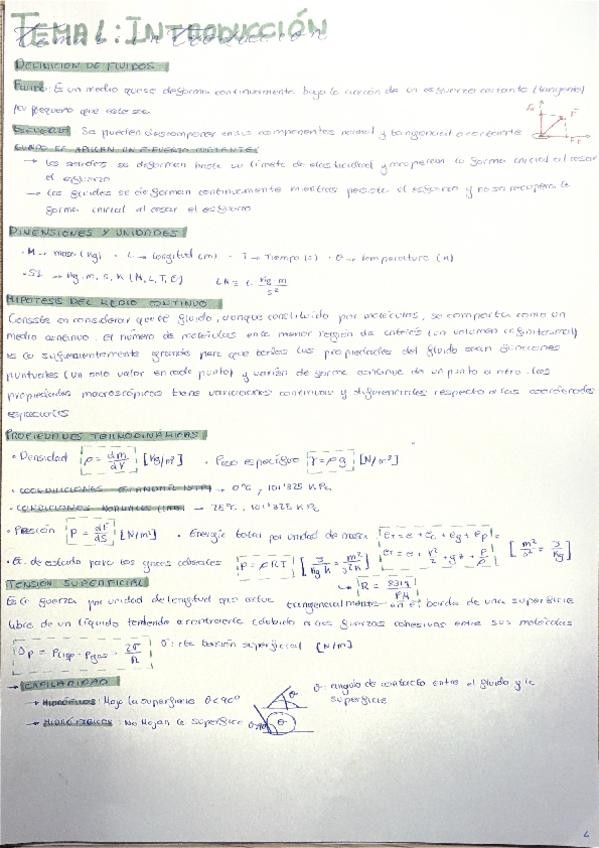 TEMA 1: INTRODUCCIÓN
DEFINICIÓN DE FLUIDOS
FLUIDO: Es un medio que se deforma continuamente bajo la acción de un esfuerzo cortante (tangencial)
por pequeño que este sea
ESFUERZO Se pueden descomponer en sus componentes normal y tangencial o cortante
CUANDO SE APLICAN UN ESFUERZO CORTANTE:
→ Los sólidos se deforman hasta su límite de elasticidad y recuperan la forma inicial al cesar
el esfuerzo
→ Los fluidos se deforman continuamente mientras persiste el esfuerzo y no se recupera la
forma inicial al cesar el esfuerzo
DIMENSIONES Y UNIDADES
· M → masa (kg) · L → longitud (m) · T → Tiempo (s) · θ → temperatura (K)
· SI → kg, m, s, K (M, L, T, θ) 1N = 1 · kg·m/s²
HIPOTESIS DEL MEDIO CONTINUO
Consiste en considerar que el fluido, aunque constituido por moléculas, se comporta como un
medio continuo. El número de moléculas en la menor región de interés (un volumen infinitesimal)
es lo suficientemente grande para que todas las propiedades del fluido sean funciones
puntuales (un solo valor en cada punto) y varíen de forma continua de un punto a otro. Las
propiedades macroscópicas tiene variaciones continuas y diferenciales respecto a las coordenadas
espaciales
PROPIEDADES TERMODINÁMICAS
· Densidad ρ = dm/dV [kg/m³] · Peso específico γ = ρg [N/m³]
· CONDICIONES ESTÁNDAR (STP) → 0ºC, 101'325 KPa
· CONDICIONES NORMALES → 25ºC, 101'325 KPa
· Presión P = dF/dS [N/m²] · Energía total por unidad de masa e_T = e + e_c + e_g + e_p = [m²/s² = J/kg]
e_T = e + v²/2 + gz + p/ρ
· Ec. de estado para los gases P = ρRT [J/kg K = m²/s²K]
↳ R = 8314/PM
TENSIÓN SUPERFICIAL
Es la fuerza por unidad de longitud que actúa tangencialmente en el borde de una superficie
libre de un líquido tendiendo a contraerle debido a las fuerzas cohesivas entre sus moléculas
Δp = Pliq - Pgas = 2σ/R σ: cte tensión superficial [N/m]
→ CAPILARIDAD θ: angulo de contacto entre el fluido y la
superficie
→ HIDRÓFILOS: Moja la superficie θ<90º
→ HIDRÓFOBOS: No Mojan la superficie θ>90º